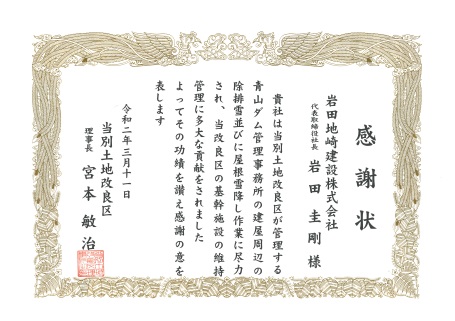 感謝状
岩田地崎建設株式会社
代表取締役社長 岩田圭剛様
貴社は当別土地改良区が管理する
青山ダム管理事務所の建屋周辺の
除排雪並びに屋根雪降し作業に尽力
され、当改良区の基幹施設の維持
管理に多大な貢献をされました
よってその功績を讃え感謝の意を
表します
令和二年三月十一日
当別土地改良区
理事長 宮本敏治